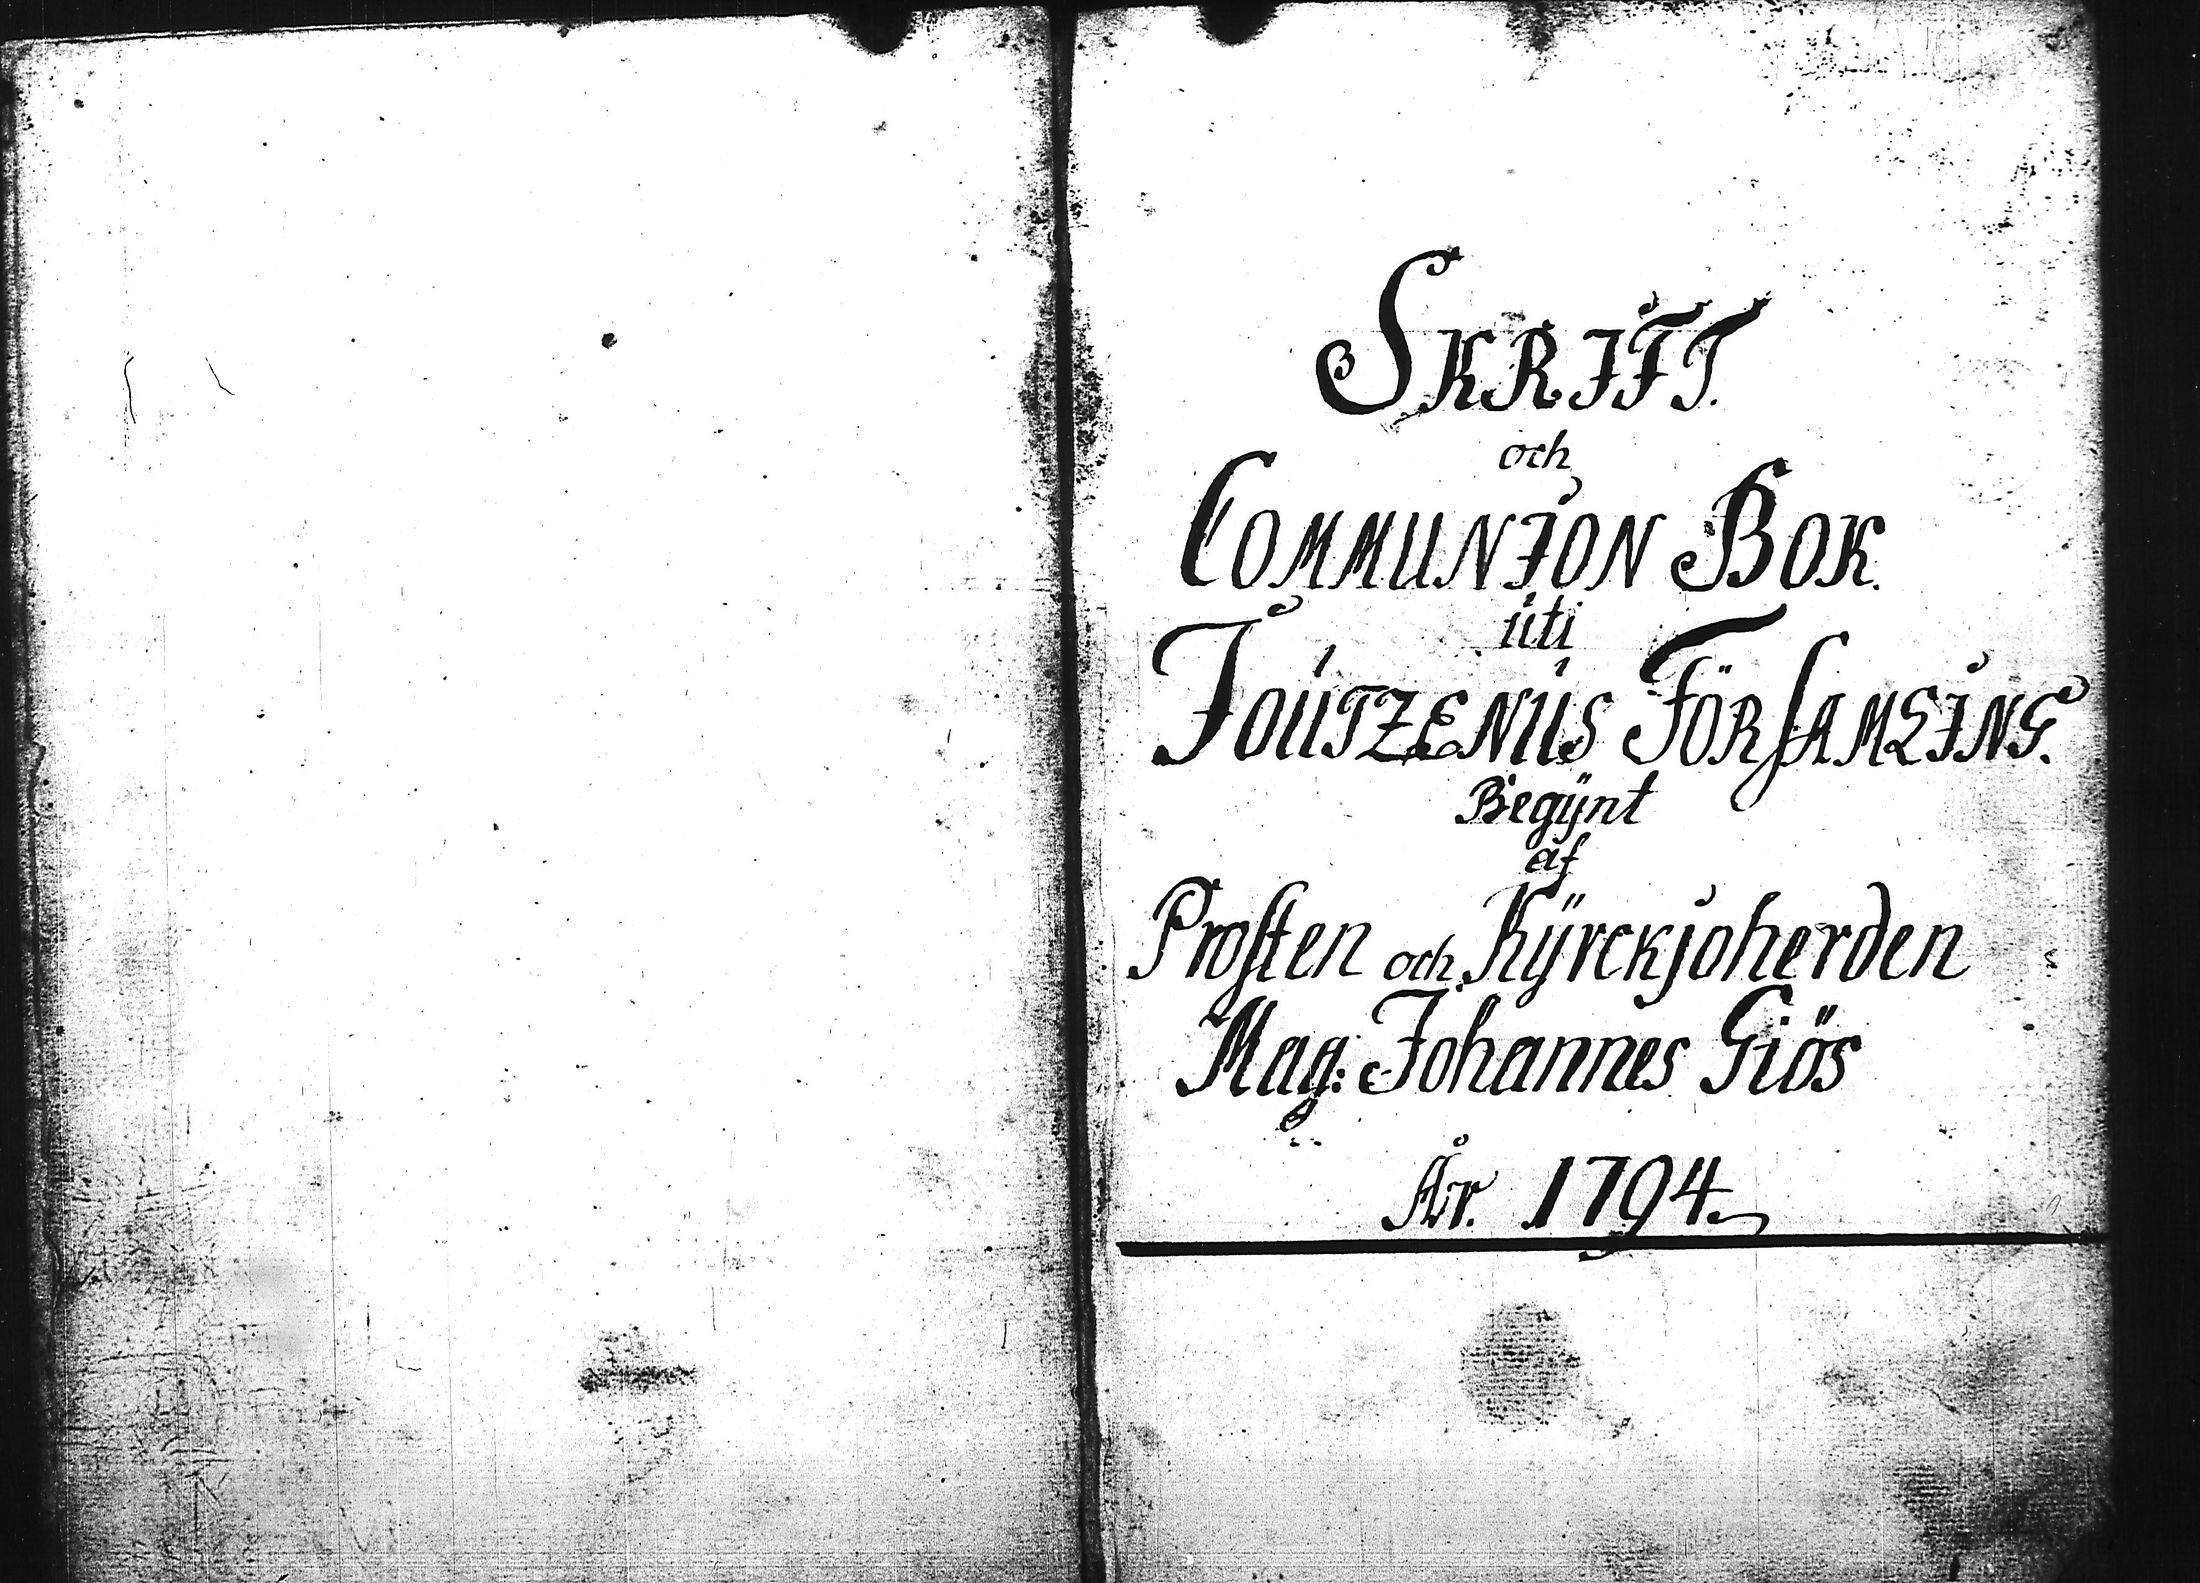 SKRIFT.
och
COMMUNION BOK.
uti
JOUTZENUS FÖRSAMLING.
Begÿnt
af
Prosten och Kÿrckjoherden
Mag: Johannes Giös
År. 1794.